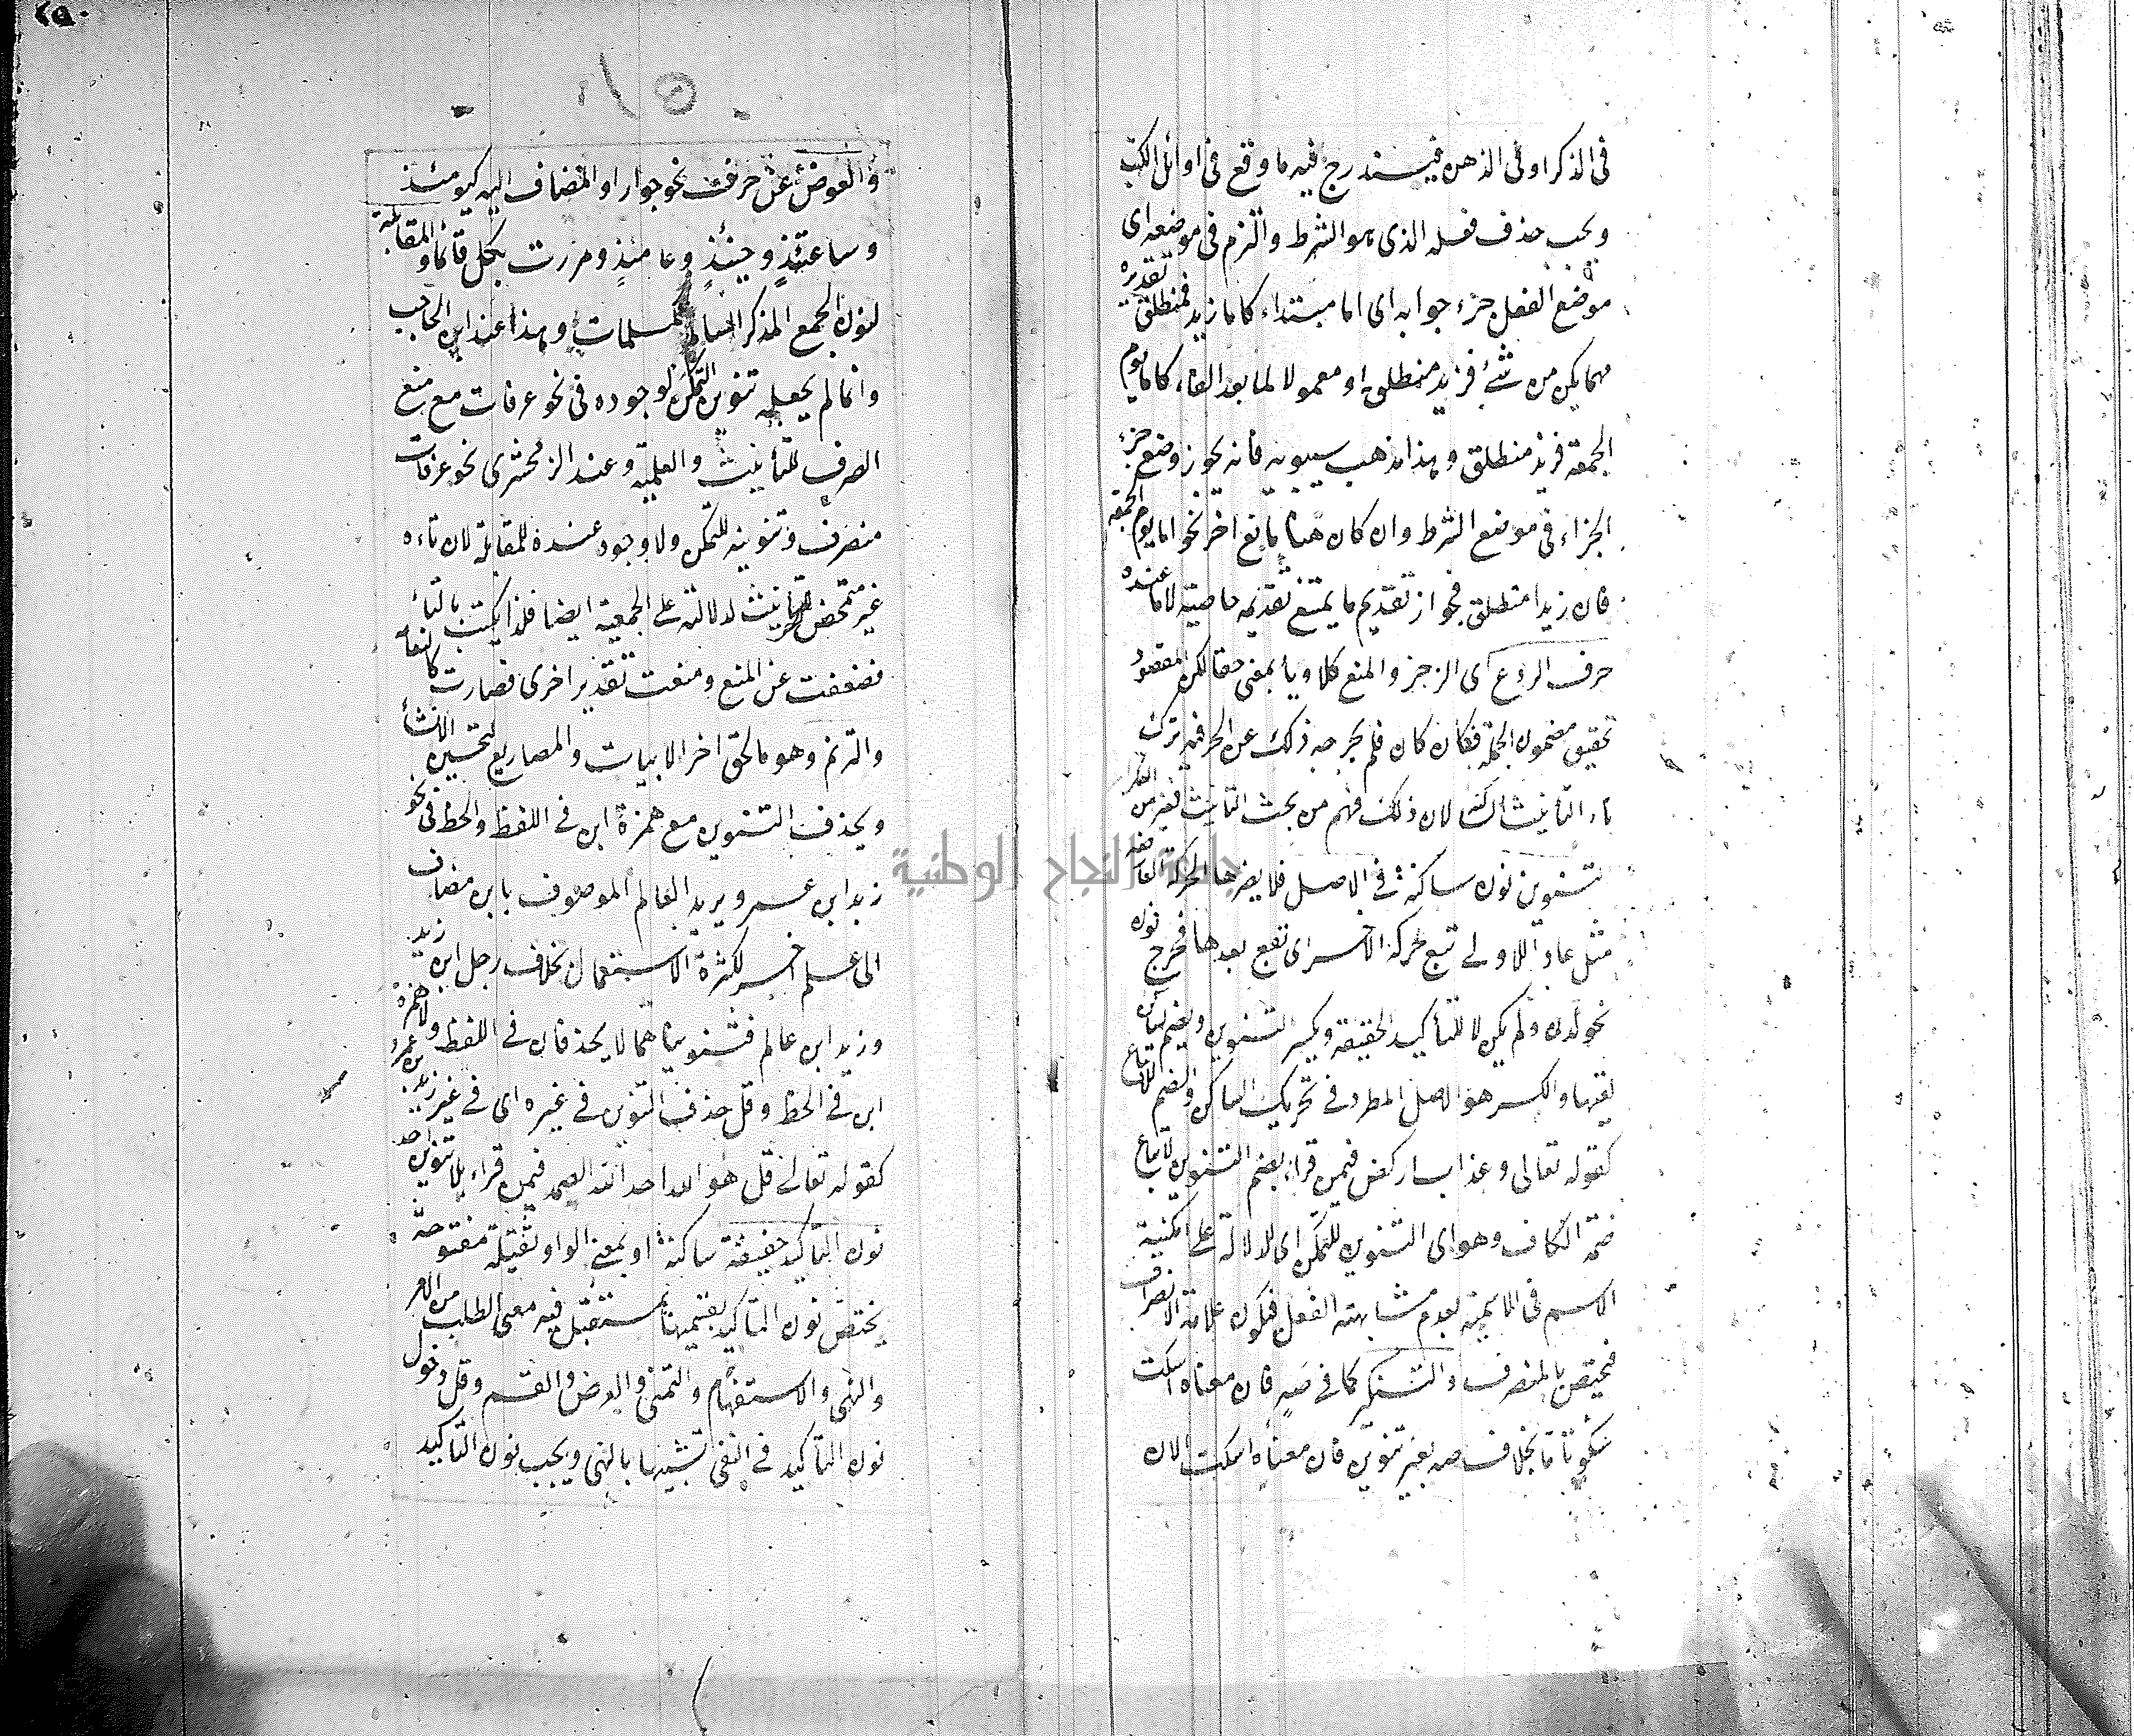 في الذكر او في الذهن فيندرج فيه ما وقع في اوائل الكتب
ويجب حذف فعله الذي هو الشرط والتزم في موضعه اى
موضع الفعل جزء جوابه اى اما مبتداء كاما زيد فمنطلق تقديره
مهما يكن من شئ فزيد منطلق او معمولا لما بعد الفاء كاما يوم
الجمعة فزيد منطلق وهذا مذهب سيبويه فانه يجوز وضع جزء
الجزاء في موضع الشرط وان كان هنا مانع اخر نحو اما يوم الجمعة
فان زيدا منطلق فجواز تقديم ما يمتنع تقديمه خاصية لاما عنده
حرف الردع اى الزجر والمنع كلا ويأ بمعنى حقا لكن المقصود
تحقيق مضمون الجملة فكان كان فلم يخرجه ذلك عن الحرفية ترك
تاء التأنيث الساكنة لان ذلك فهم من بحث التأنيث
تنوين نون ساكنة في الاصل فلا يضرها الحركة العارضة
مثل عادا الاولى تتبع حركة الاخر اى تقع بعدها فخرج نون
نحو لدن ولم يكن لا للتأكيد الحقيقة ويكسر التنوين ويضم لساكن
يقيها والكسر هو الاصل المطرد في تحريك الساكن والضم للاتباع
كقوله تعالى وعذاب اركض فيمن قراء بضم التنوين لاتباع
ضمة الكاف وهو اى التنوين للتمكن اى للدلالة على امكنية
الاسم في الاسمية لعدم مشابهته الفعل فيكون علامة الانصراف
فيختص بالمنصرف والتنكير كما في صه فان معناه اسكت
سكوتا ما بخلاف صه بغير تنوين فان معناه اسكت الان
٢٥٠
والعوض عن حرف نحو جوار او المضاف اليه كيومئذ
وساعتئذ وحينئذ وعامئذ ومررت بكل قائما والمقابلة
لنون الجمع المذكر السالم كمسلمات وهذا عند ابن الحاجب
وانما لم يجعله تنوين التمكن لوجوده في نحو عرفات مع منع
الصرف للتأنيث والعلمية وعند الزمخشرى نحو عرفات
منصرف وتنوينه للتمكن ولا وجود عنده للمقابلة لان تاءه
غير متمحض للتأنيث لدلالته على الجمعية ايضا فلذا يكتب بالتاء
فضعفت عن المنع ومنعت تقدير اخرى فصارت كالتفا
والترنم وهو ما لحق اخر الابيات والمصاريع لتحسين الانشأ
ويحذف التنوين مع همزة ابن في اللفظ والخط في نحو
زيد ابن عمرو يريد العالم الموصوف بابن مضاف
الى علم اخر لكثرة الاستعمال بخلاف رجل ابن زيد
وزيد ابن عالم فتنويناهما لا يحذفان في اللفظ ولا همزة
ابن في الخط وقل حذف التنوين في غيره اى في غير زيد بن عمرو
كقوله تعالى قل هو الله احد الله الصمد فيمن قراء بلا تنوين احد
نون التاكيد خفيفة ساكنة او بمعنى الواو ثقيلة مفتوحة
يختص نون التاكيد بقسميها بمستقبل فيه معنى الطلب من الامر
والنهى والاستفهام والتمنى والعرض والقسم وقل دخول
نون التاكيد في النفي تشبيها بالنهى ويجب نون التاكيد
جامعة النجاح الوطنية